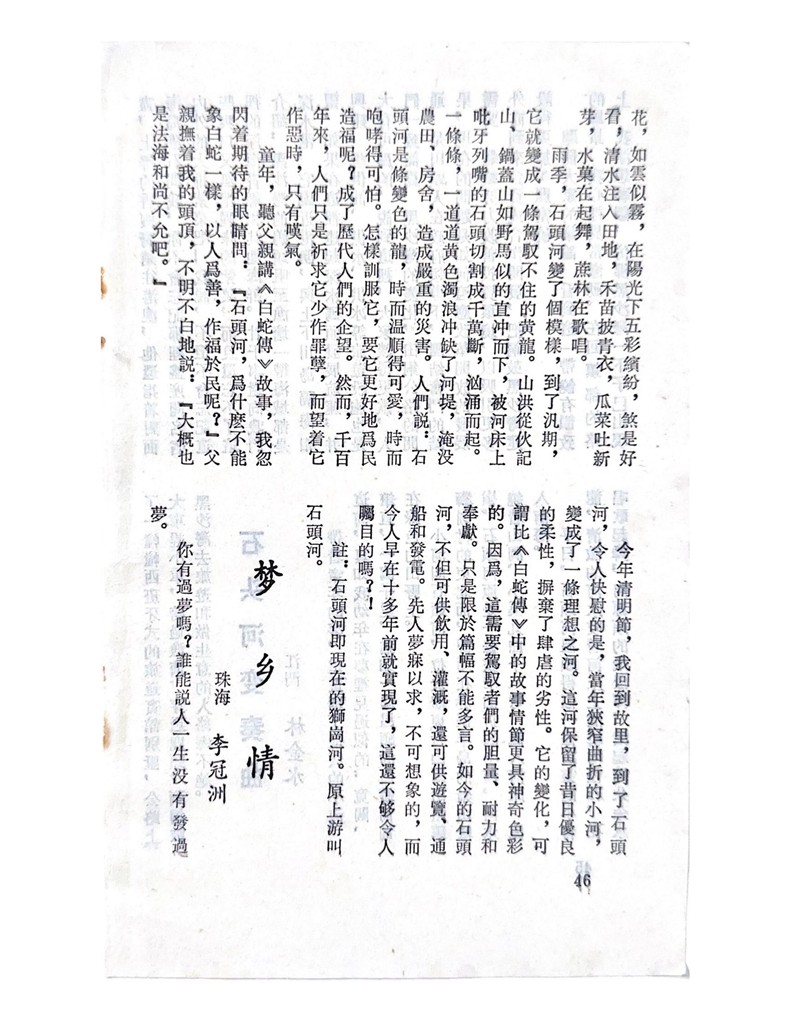 花，如雲似霧，在陽光下五彩繽紛，煞是好
看，清水注入田地，禾苗披青衣，瓜菜吐新
芽，水菓在起舞，蔗林在歌唱。
雨季，石頭河變了個模樣，到了汎期，
它就變成一條駕馭不住的黄龍。山洪從伙記
山、鍋蓋山如野馬似的直冲而下，被河床上
吡牙列嘴的石頭切割成千萬斷，汹涌而起。
一條條，一道道黄色濁浪冲缺了河堤，淹没
農田、房舍，造成嚴重的災害。人們説：石
頭河是條變色的龍，時而温順得可愛，時而
咆哮得可怕。怎樣訓服它，要它更好地爲民
造福呢？成了歷代人們的企望。然而，千百
年來，人們只是祈求它少作罪孽，而望着它
作惡時，只有嘆氣。
童年，聽父親講《白蛇傳》故事，我忽
閃着期待的眼睛問：『石頭河，爲什麽不能
象白蛇一樣，以人爲善，作福於民呢？』父
親撫着我的頭頂，不明不白地説：『大概也
是法海和尚不允吧。』
今年清明節，我回到故里，到了石頭
河，令人快慰的是，當年狹窄曲折的小河，
變成了一條理想之河。這河保留了昔日優良
的柔性，摒棄了肆虐的劣性。它的變化，可
謂比《白蛇傳》中的故事情節更具神奇色彩
的。因爲，這需要駕馭者們的胆量、耐力和
奉獻。只是限於篇幅不能多言。如今的石頭
河，不但可供飲用、灌溉，還可供遊覽、通
船和發電。先人夢寐以求，不可想象的，而
今人早在十多年前就實現了，這還不够令人
矚目的嗎？！
註：石頭河即現在的獅崗河。原上游叫
石頭河。
梦乡情
珠海 李冠洲
你有過夢嗎？誰能説人一生没有發過
夢。
46